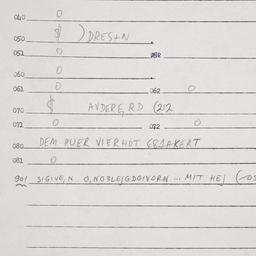 040 0
050 $ ) DRESTN
051 0
060 0
061 0 062 0
070 $ AVDERE, RD (212
071 0 072 0
080 DEM PUER VIERHOT 681AKERT
081 0
901 SIGIVE, N O, NOBLEJGDGIVORN ... MIT HEJ